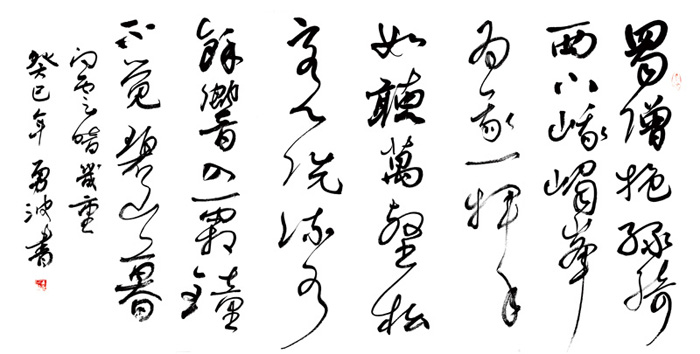 蜀僧抱绿绮
西下峨嵋峰
为我一挥手
如聽萬壑松
客心洗流水
餘響入霜鐘
不觉碧山暮
向云暗幾重
癸巳年 勇波書